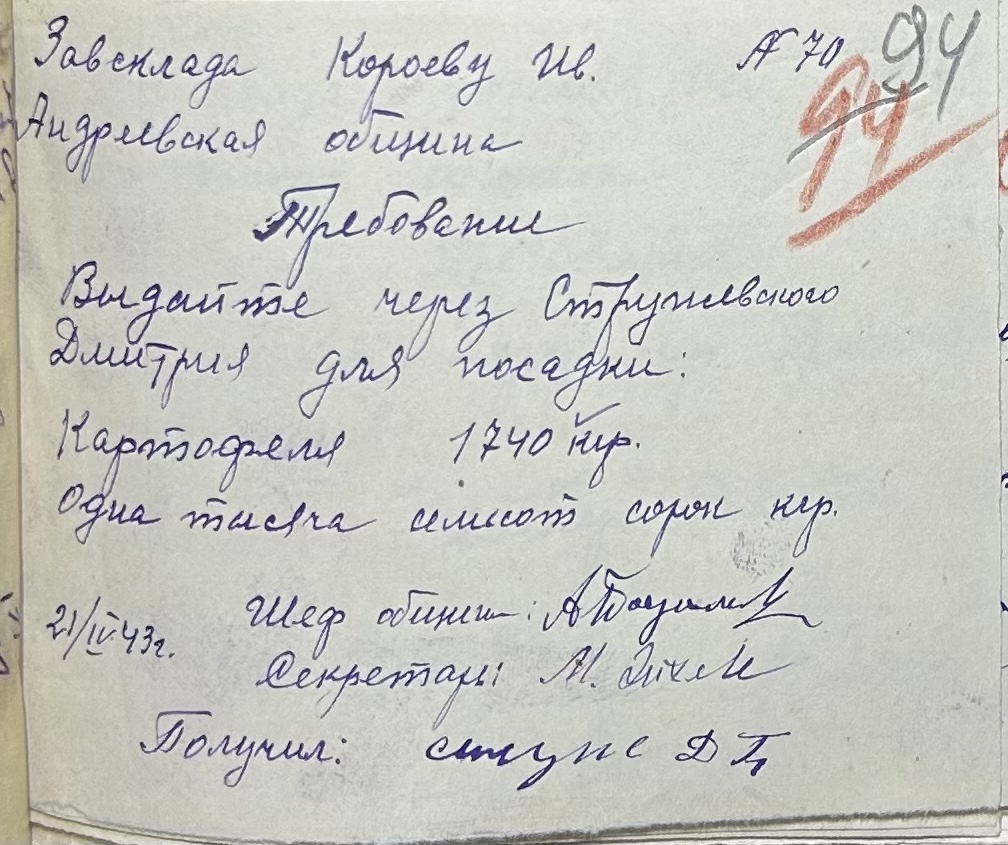 Завсклада Короеву Ив. № 70 94
94
Андреевская община
Требование
Выдайте через Стружевского
Дмитрия для посадки:
Картофеля 1740 кгр.
Одна тысяча семьсот сорок кгр.
21/IV-43г. Шеф общины:
Секретарь: М.
Получил: